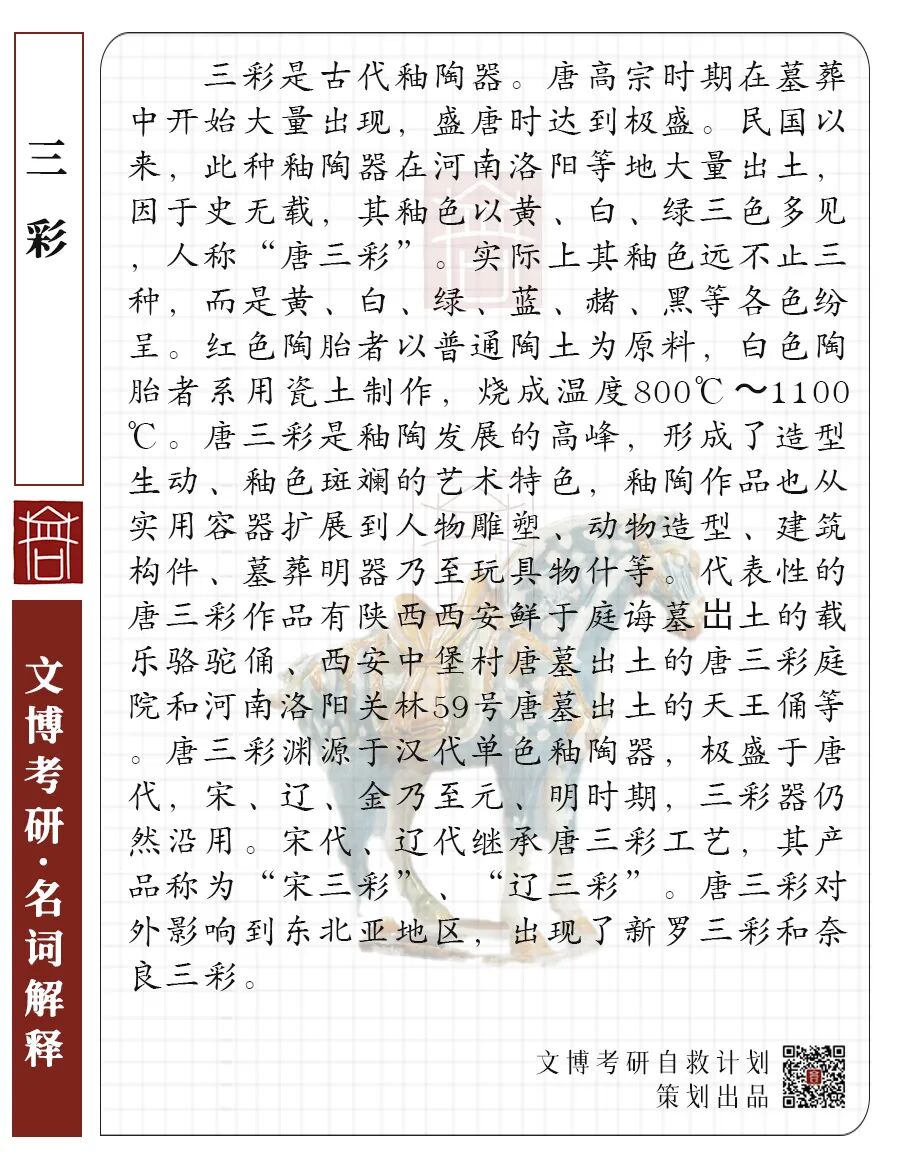 三彩
文博考研·名词解释
三彩是古代釉陶器。唐高宗时期在墓葬
中开始大量出现，盛唐时达到极盛。民国以
来，此种釉陶器在河南洛阳等地大量出土，
因于史无载，其釉色以黄、白、绿三色多见
，人称“唐三彩”。实际上其釉色远不止三
种，而是黄、白、绿、蓝、赭、黑等各色纷
呈。红色陶胎者以普通陶土为原料，白色陶
胎者系用瓷土制作，烧成温度800℃～1100
℃。唐三彩是釉陶发展的高峰，形成了造型
生动、釉色斑斓的艺术特色，釉陶作品也从
实用容器扩展到人物雕塑、动物造型、建筑
构件、墓葬明器乃至玩具物什等。代表性的
唐三彩作品有陕西西安鲜于庭诲墓出土的载
乐骆驼俑、西安中堡村唐墓出土的唐三彩庭
院和河南洛阳关林59号唐墓出土的天王俑等
。唐三彩渊源于汉代单色釉陶器，极盛于唐
代，宋、辽、金乃至元、明时期，三彩器仍
然沿用。宋代、辽代继承唐三彩工艺，其产
品称为“宋三彩”、“辽三彩”。唐三彩对
外影响到东北亚地区，出现了新罗三彩和奈
良三彩。
文博考研自救计划
策划出品